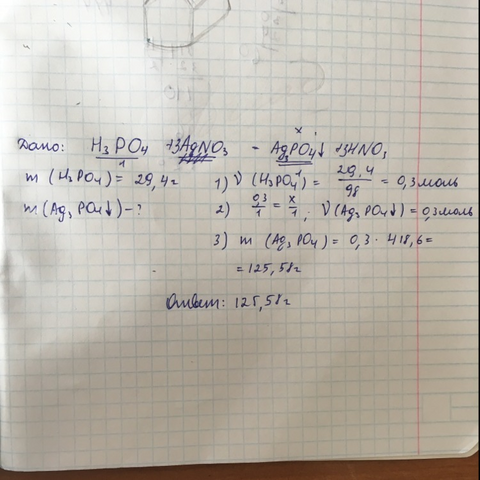 Дано: H₃PO₄ + 3AgNO₃ - Ag₃PO₄↓ + 3HNO₃
1 x
m (H₃PO₄) = 29,4 г 1) ν (H₃PO₄) = 29,4/98 = 0,3 моль
m (Ag₃PO₄↓) - ? 2) 0,3/1 = x/1 ; ν (Ag₃PO₄↓) = 0,3 моль
3) m (Ag₃PO₄) = 0,3 · 418,6 =
= 125,58 г
Ответ: 125,58 г